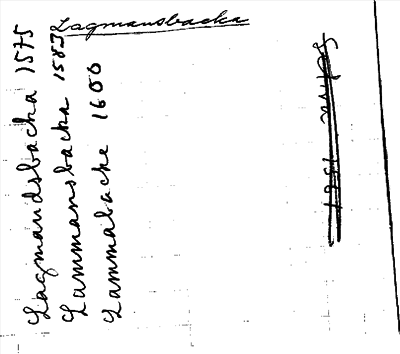 Lagmansbacka
Lagmandsbacka 1575
Lammansbacka 1583
Lammabacke 1600